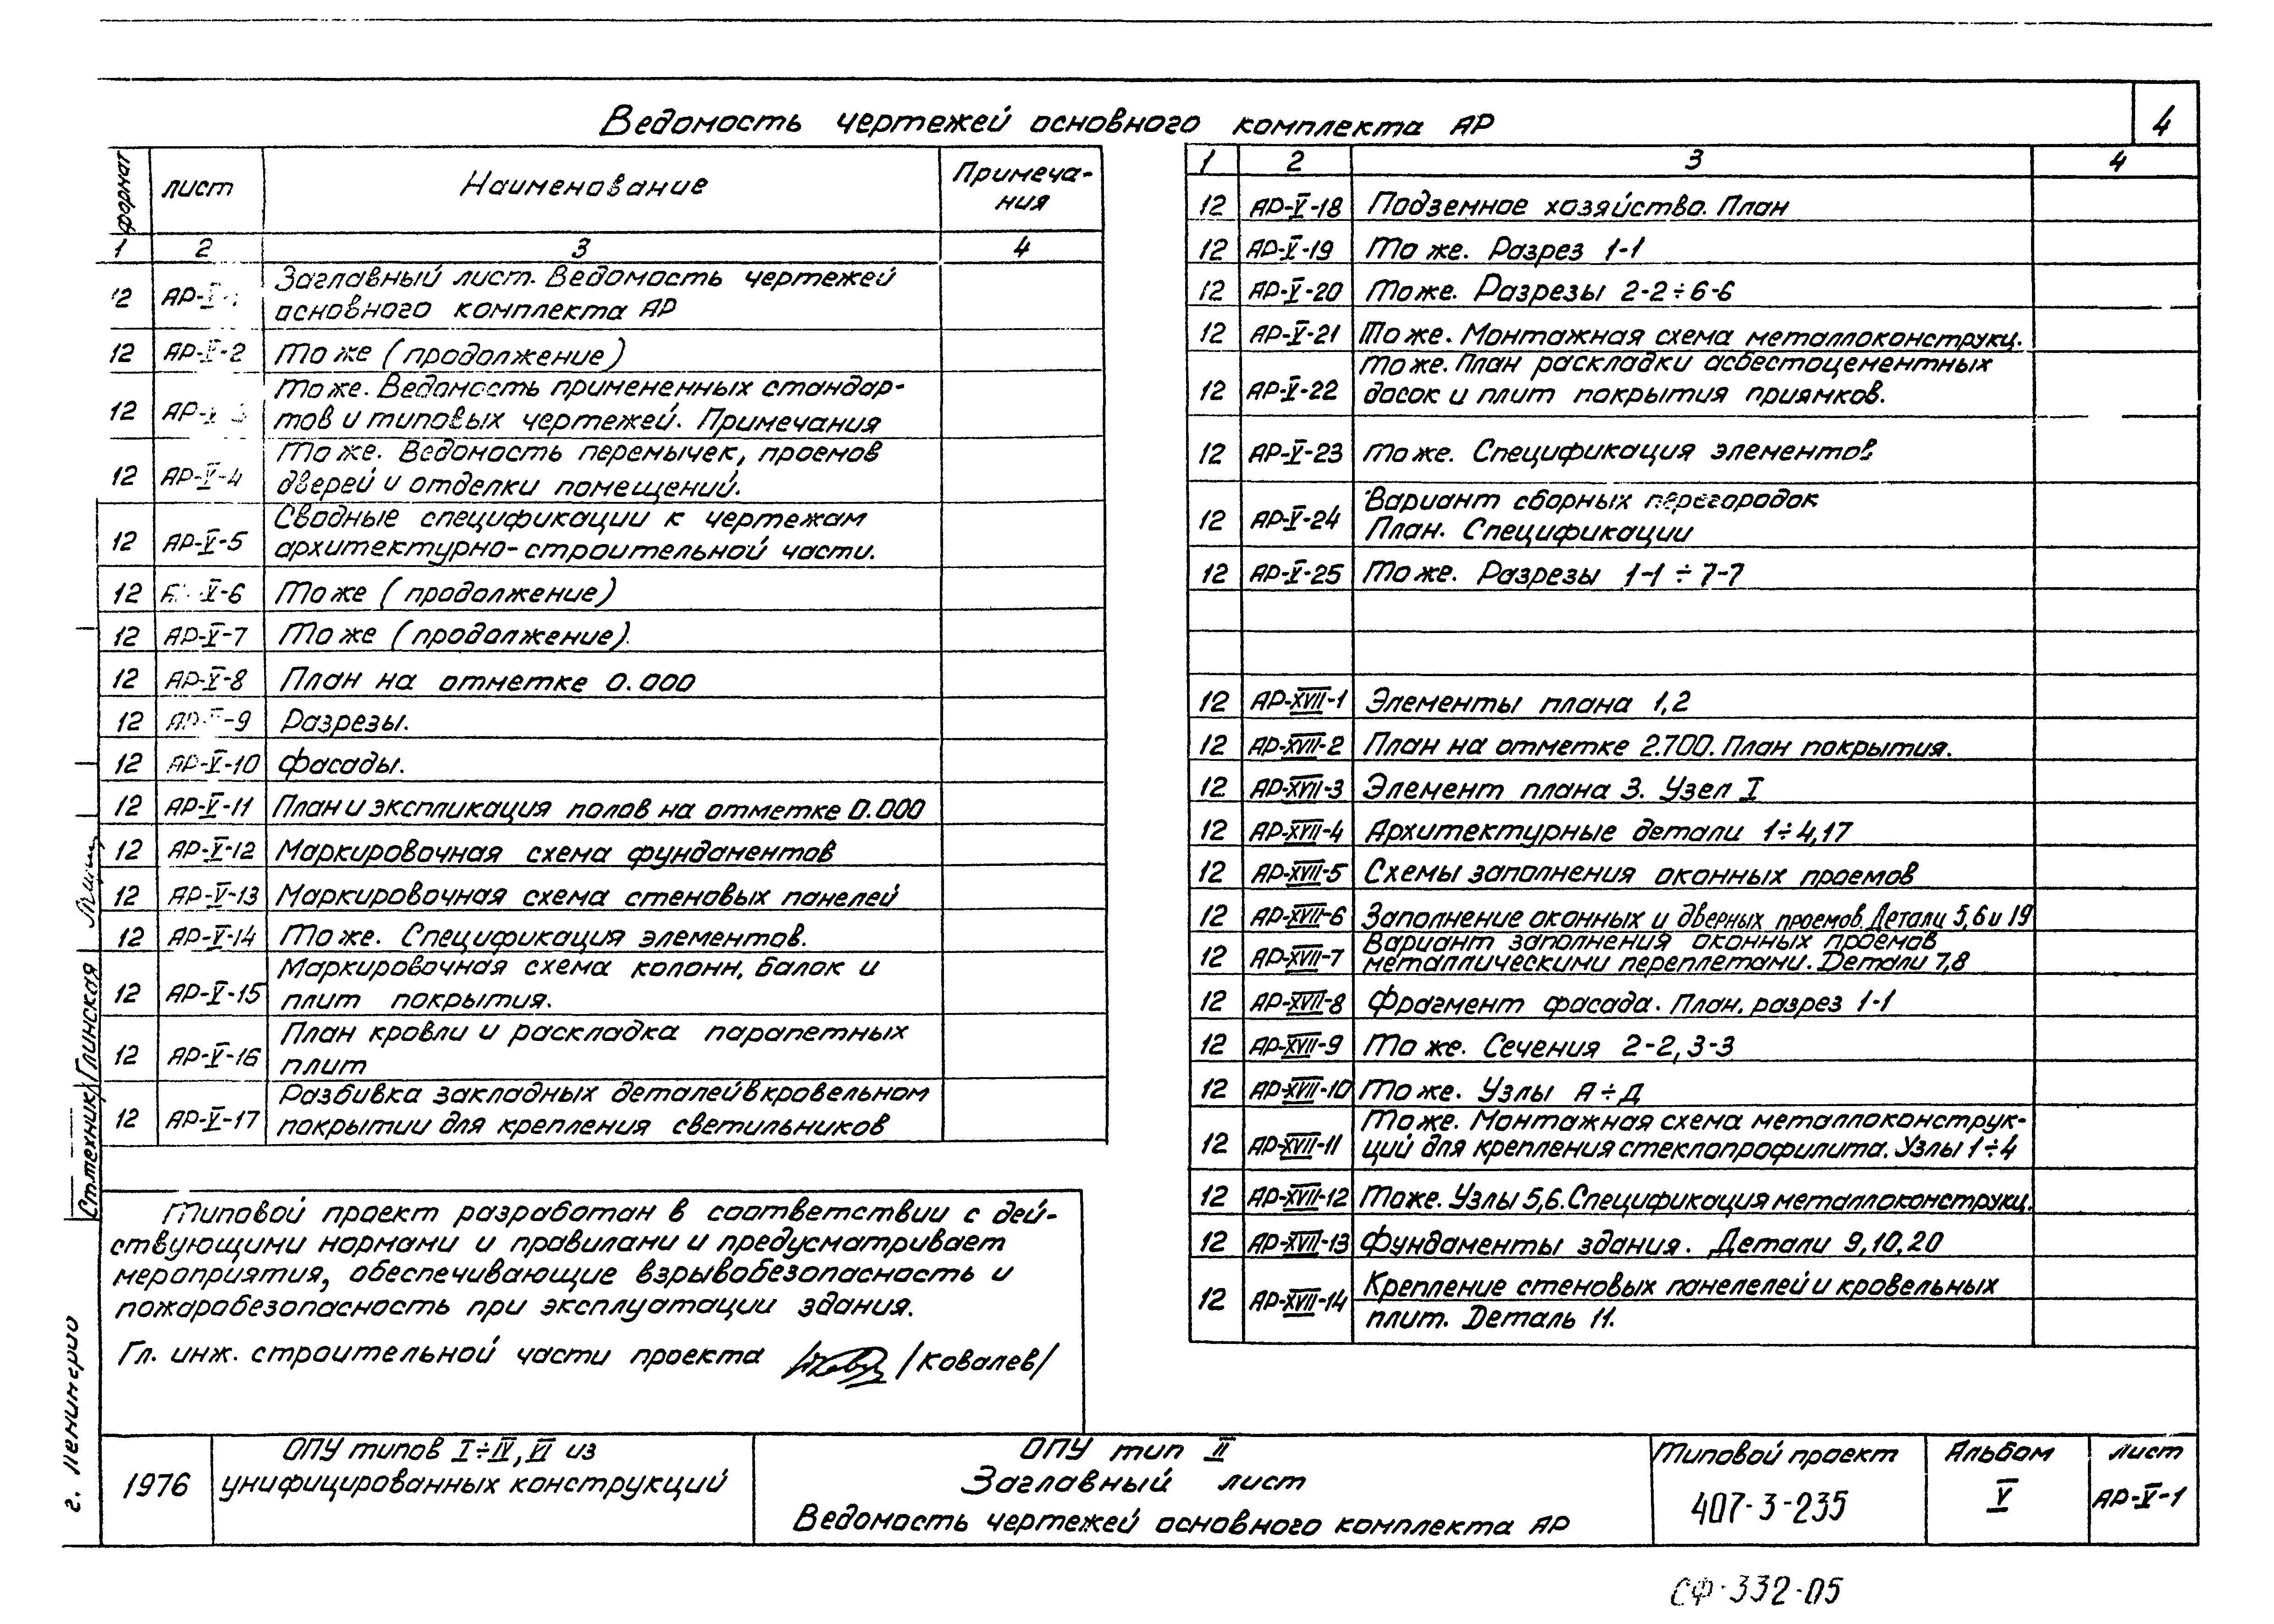 4
Ведомость чертежей основного комплекта АР
формат лист Наименование Примеча-
ния
1 2 3 4
12 АР-V-1 Заглавный лист. Ведомость чертежей
основного комплекта АР
12 АР-V-2 То же (продолжение)
12 АР-V-3 То же. Ведомость примененных стандар-
тов и типовых чертежей. Примечания
12 АР-V-4 То же. Ведомость перемычек, проемов
дверей и отделки помещений.
12 АР-V-5 Сводные спецификации к чертежам
архитектурно-строительной части.
12 АР-V-6 То же (продолжение)
12 АР-V-7 То же (продолжение).
12 АР-V-8 План на отметке 0.000
12 АР-V-9 Разрезы.
12 АР-V-10 Фасады.
12 АР-V-11 План и экспликация полов на отметке 0.000
12 АР-V-12 Маркировочная схема фундаментов
12 АР-V-13 Маркировочная схема стеновых панелей
12 АР-V-14 То же. Спецификация элементов.
12 АР-V-15 Маркировочная схема колонн, балок и
плит покрытия.
12 АР-V-16 План кровли и раскладка парапетных
плит
12 АР-V-17 Разбивка закладных деталей в кровельном
покрытии для крепления светильников
1 2 3 4
12 АР-V-18 Подземное хозяйство. План
12 АР-V-19 То же. Разрез 1-1
12 АР-V-20 То же. Разрезы 2-2÷6-6
12 АР-V-21 То же. Монтажная схема металлоконструкц.
12 АР-V-22 То же. План раскладки асбестоцементных
досок и плит покрытия приямков.
12 АР-V-23 То же. Спецификация элементов
12 АР-V-24 Вариант сборных перегородок
План. Спецификации
12 АР-V-25 То же. Разрезы 1-1 ÷ 7-7
12 АР-XVII-1 Элементы плана 1,2
12 АР-XVII-2 План на отметке 2.700. План покрытия.
12 АР-XVII-3 Элемент плана 3. Узел I
12 АР-XVII-4 Архитектурные детали 1÷4,17
12 АР-XVII-5 Схемы заполнения оконных проемов
12 АР-XVII-6 Заполнение оконных и дверных проемов. Детали 5,6 и 19
12 АР-XVII-7 Вариант заполнения оконных проемов
металлическими переплетами. Детали 7,8
12 АР-XVII-8 Фрагмент фасада. План, разрез 1-1
12 АР-XVII-9 То же. Сечения 2-2, 3-3
12 АР-XVII-10 То же. Узлы А÷Д
12 АР-XVII-11 То же. Монтажная схема металлоконструк-
ций для крепления стеклопрофилита. Узлы 1÷4
12 АР-XVII-12 То же. Узлы 5,6. Спецификация металлоконструкц.
12 АР-XVII-13 Фундаменты здания. Детали 9,10,20
12 АР-XVII-14 Крепление стеновых панелелей и кровельных
плит. Деталь 11.
Типовой проект разработан в соответствии с дей-
ствующими нормами и правилами и предусматривает
мероприятия, обеспечивающие взрывобезопасность и
пожаробезопасность при эксплуатации здания.
Гл. инж. строительной части проекта /Ковалев/
Ст. техник Глинская
г. Ленингра
1976
ОПУ типов I÷IV, VI из
унифицированных конструкций
ОПУ тип II
Заглавный лист
Ведомость чертежей основного комплекта АР
Типовой проект
407-3-235
Альбом
V
лист
АР-V-1
СФ-332-05